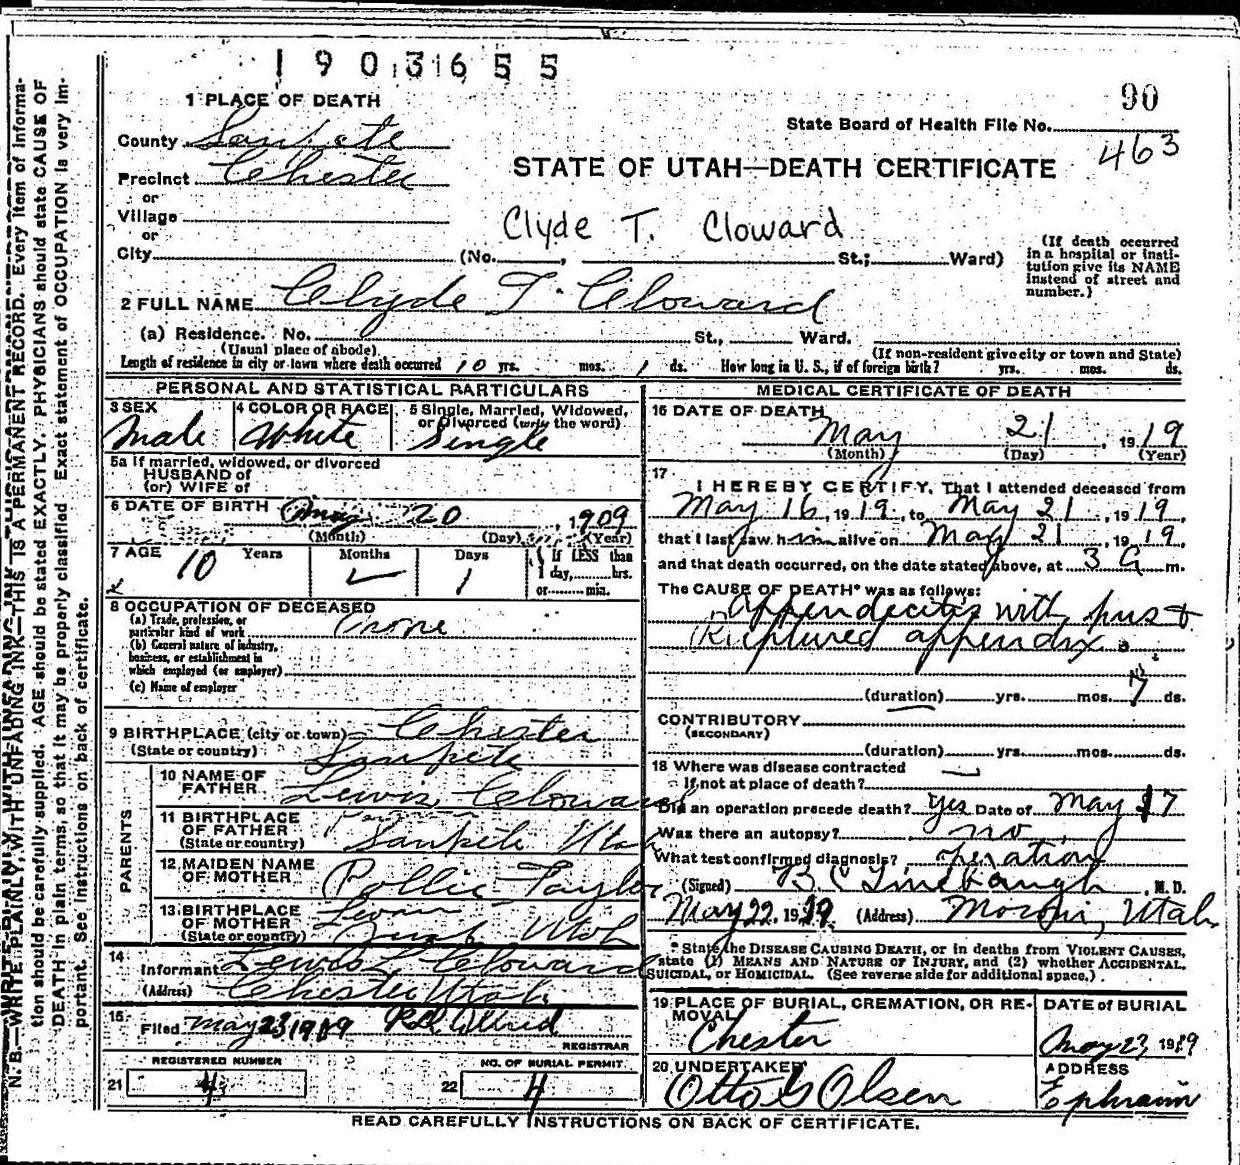 1903655
90
1 PLACE OF DEATH
State Board of Health File No.
463
County Sanpete
STATE OF UTAH—DEATH CERTIFICATE
Precinct Chester
or
Village
or
Clyde T. Cloward
City (No. , St.; Ward)
(If death occurred in a hospital or institution give its NAME instead of street and number.)
2 FULL NAME Clyde T. Cloward
(a) Residence. No. St., Ward.
(Usual place of abode) (If non-resident give city or town and State)
Length of residence in city or town where death occurred 10 yrs. mos. 1 ds. How long in U. S., if of foreign birth? yrs. mos. ds.
PERSONAL AND STATISTICAL PARTICULARS
3 SEX Male
4 COLOR OR RACE White
5 Single, Married, Widowed, or Divorced (write the word) Single
5a If married, widowed, or divorced
HUSBAND of
(or) WIFE of
6 DATE OF BIRTH May 20, 1909
(Month) (Day) (Year)
7 AGE 10 Years Months 1 Days
If LESS than 1 day, hrs. or min.
8 OCCUPATION OF DECEASED
(a) Trade, profession, or particular kind of work none
(b) General nature of industry, business, or establishment in which employed (or employer)
(c) Name of employer
9 BIRTHPLACE (city or town) Chester
(State or country) Sanpete
PARENTS
10 NAME OF FATHER Lewis Cloward
11 BIRTHPLACE OF FATHER
(State or country) Sanpete Utah
12 MAIDEN NAME OF MOTHER Pollie Taylor
13 BIRTHPLACE OF MOTHER
(State or country) Utah
14 Informant Lewis L Cloward
(Address) Chester Utah
15 Filed May 23, 1919
REGISTRAR
REGISTERED NUMBER
21 4
NO. OF BURIAL PERMIT
22 4
MEDICAL CERTIFICATE OF DEATH
16 DATE OF DEATH
May 21, 1919
(Month) (Day) (Year)
17
I HEREBY CERTIFY, That I attended deceased from
May 16, 1919, to May 21, 1919,
that I last saw him alive on May 21, 1919,
and that death occurred, on the date stated above, at 3 a m.
The CAUSE OF DEATH* was as follows:
appendecitis with pus &
Ruptured appendix.
(duration) yrs. mos. 7 ds.
CONTRIBUTORY
(SECONDARY)
(duration) yrs. mos. ds.
18 Where was disease contracted
If not at place of death?
Did an operation precede death? yes Date of May 17
Was there an autopsy? no
What test confirmed diagnosis? operation
(Signed) B C Linebaugh, M. D.
May 22, 1919 (Address) Moroni, Utah
* State the DISEASE CAUSING DEATH, or in deaths from VIOLENT CAUSES, state (1) MEANS AND NATURE OF INJURY, and (2) whether ACCIDENTAL, SUICIDAL, or HOMICIDAL. (See reverse side for additional space.)
19 PLACE OF BURIAL, CREMATION, OR REMOVAL
Chester
DATE of BURIAL
May 23, 1919
20 UNDERTAKER
Otto G Olsen
ADDRESS
Ephraim
READ CAREFULLY INSTRUCTIONS ON BACK OF CERTIFICATE.
N. B.—WRITE PLAINLY, WITH UNFADING INK—THIS IS A PERMANENT RECORD. Every item of information should be carefully supplied. AGE should be stated EXACTLY. PHYSICIANS should state CAUSE OF DEATH in plain terms, so that it may be properly classified. Exact statement of OCCUPATION is very important. See instructions on back of certificate.